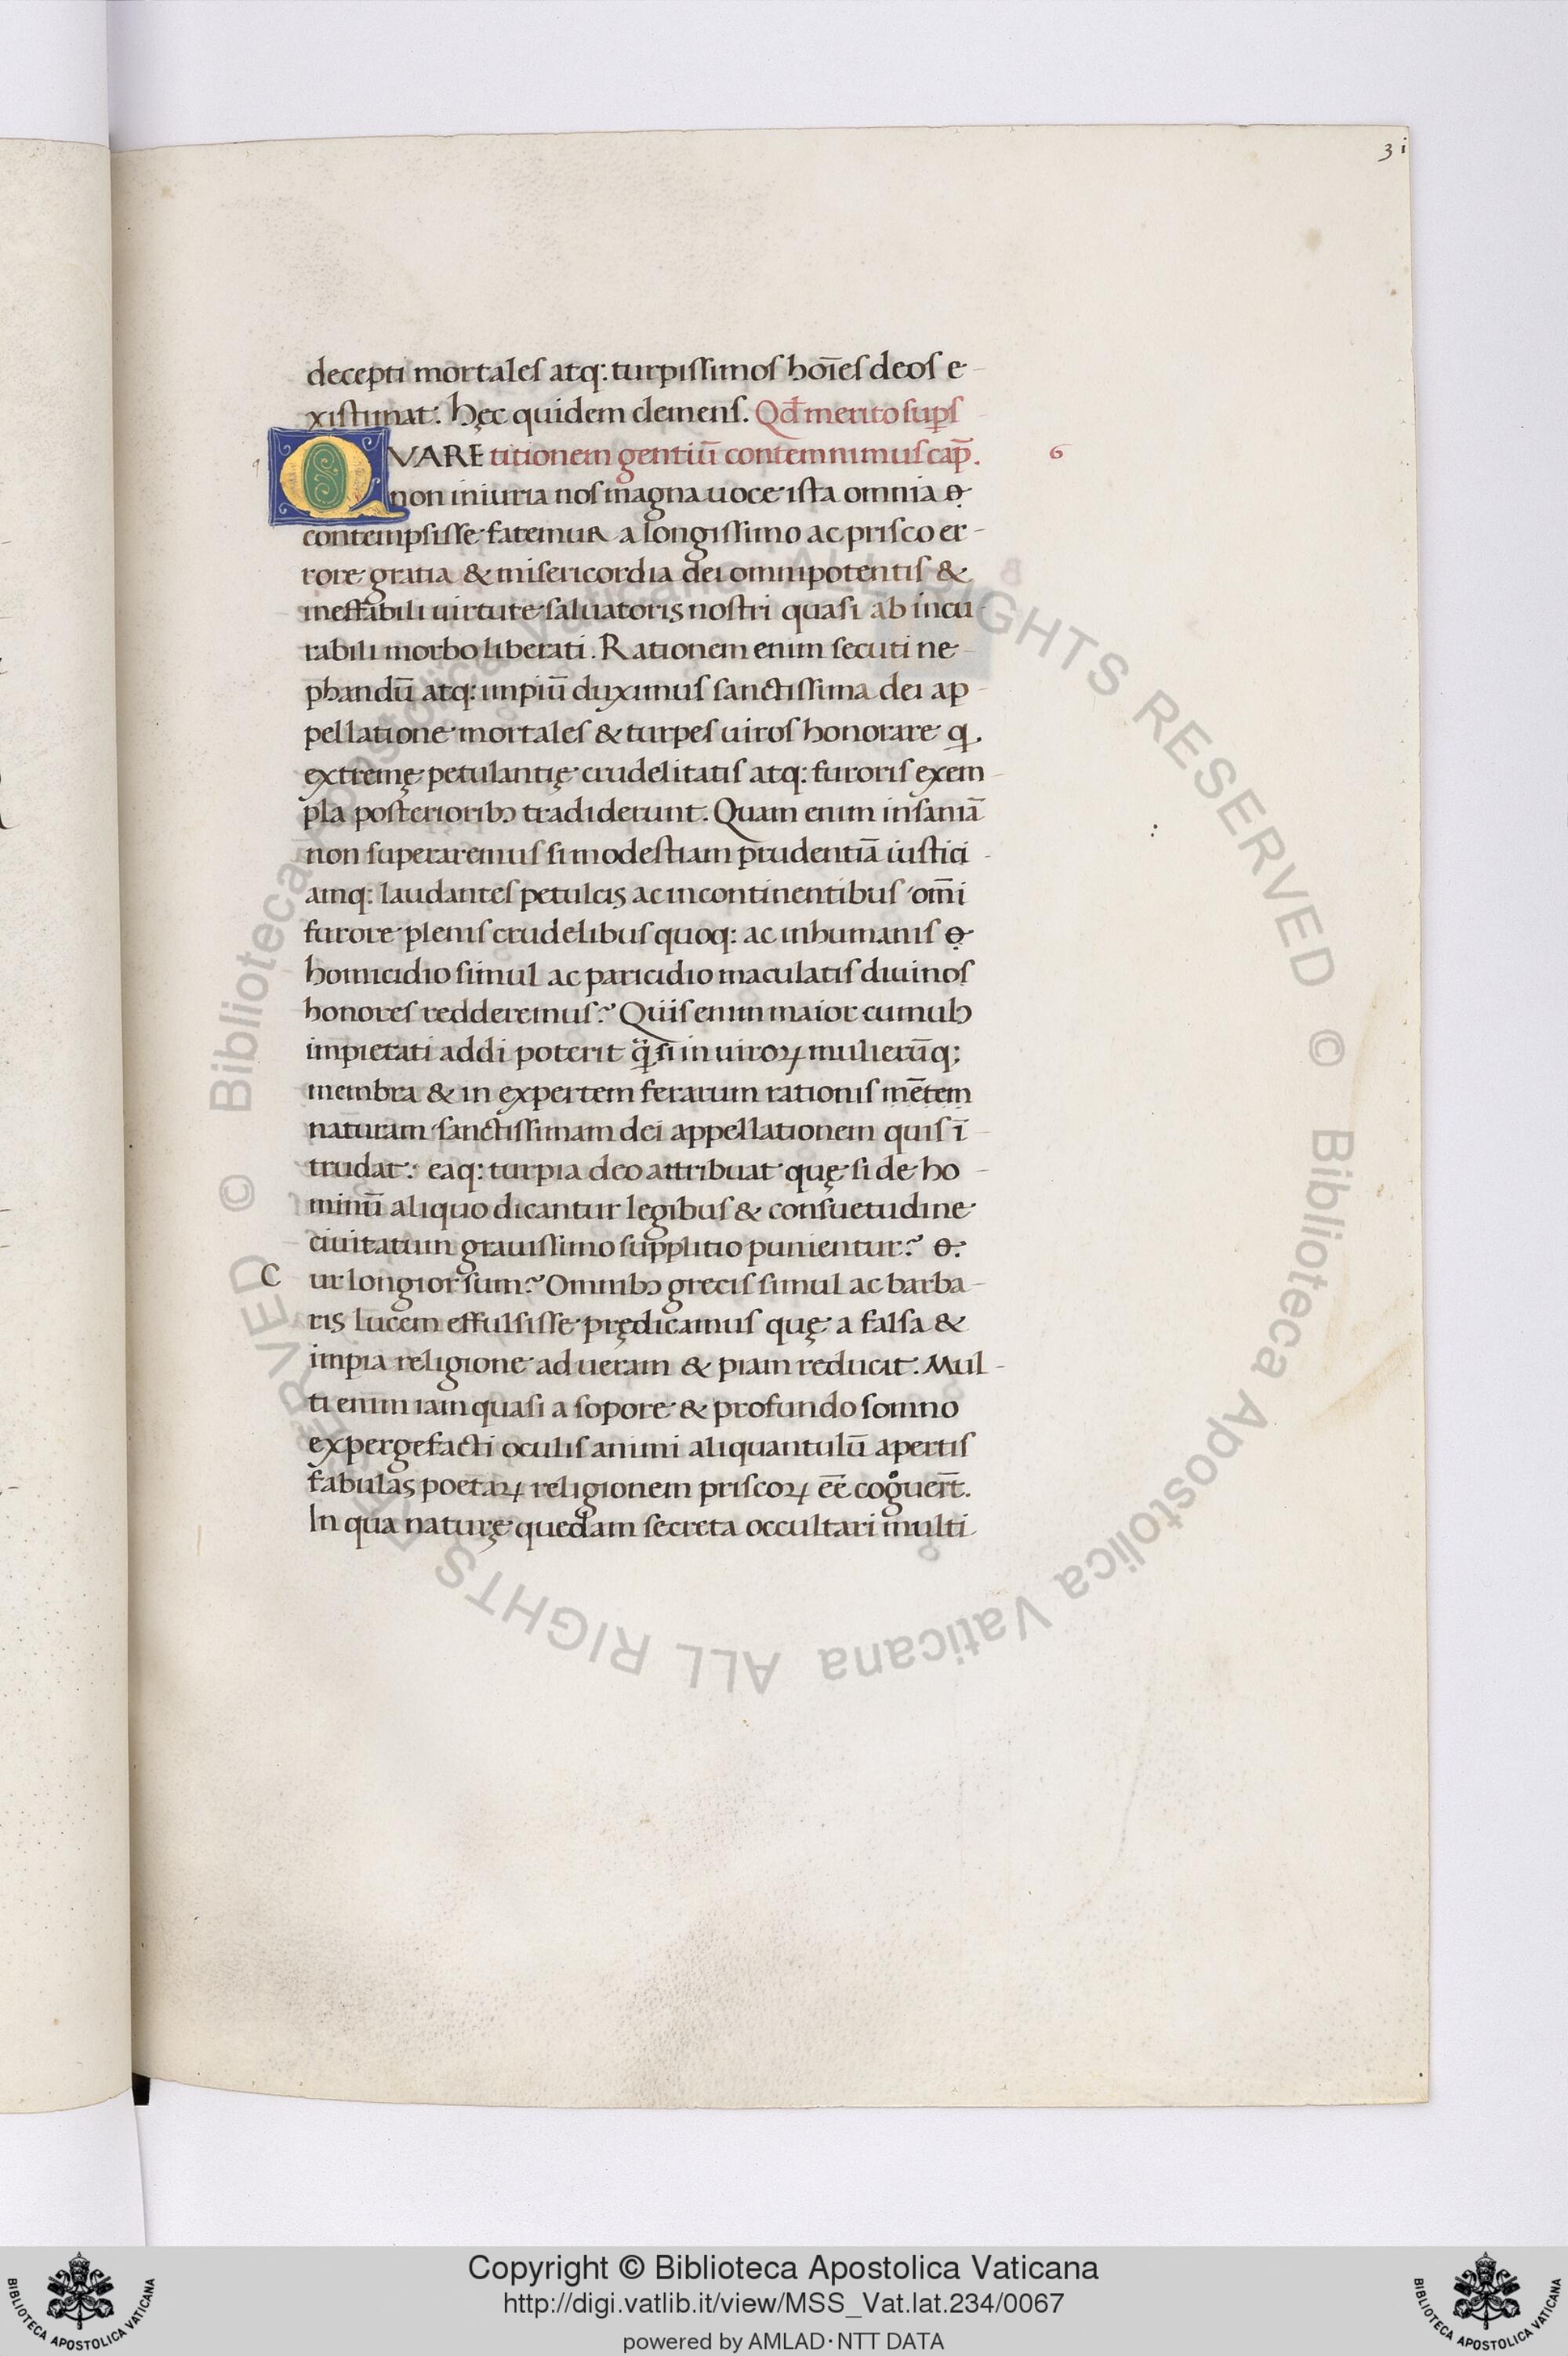 3i
decepti mortales atq: turpissimos hoīes deos e-
xistimat. hęc quidem clemens. Qđ merito sup̱s
QVARE titionem gentiū contemnimus cap̄. 6
non iniuria nos magna uoce ista omnia &
contempsisse fatemur a longissimo ac prisco er-
rore gratia & misericordia dei omnipotentis &
ineffabili uirtute saluatoris nostri quasi ab incu-
rabili morbo liberati. Rationem enim secuti ne-
phandū atq: impiū duximus sanctissima dei ap-
pellatione mortales & turpes uiros honorare q
extremę petulantię crudelitatis atq: furoris exem-
pla posterioribꝯ tradiderunt. Quam enim insaniā
non superaremus si modestiam prudentiā iustici-
amq: laudantes petulcis ac incontinentibus omī
furore plenis crudelibus quoq: ac inhumanis &
homicidio simul ac paricidio maculatis diuinos
honores redderemus? Quis enim maior cumulꝰ
impietati addi poterit q̈ si in uiroꝝ mulierūq;
membra & in expertem ferarum rationis mētem
naturam sanctissimam dei appellationem quis ī-
trudat: eaq: turpia deo attribuat quę si de ho-
minū aliquo dicantur legibus & consuetudine
ciuitatum grauissimo supplitio punientur? &
Cur longior sum? Omnibꝯ grecis simul ac barba-
ris lucem effulsisse prędicamus quę a falsa &
impia religione ad ueram & piam reducit. Mul-
ti enim iam quasi a sopore & profundo somno
expergefacti oculis animi aliquantulū apertis
fabulas poetaꝝ religionem priscoꝝ eē cog̊uert̄.
In qua naturę quedam secreta occultari multi
© Biblioteca Apostolica Vaticana ALL RIGHTS RESERVED © Biblioteca Apostolica Vaticana ALL RIGHTS RESERVED
Copyright © Biblioteca Apostolica Vaticana
http://digi.vatlib.it/view/MSS_Vat.lat.234/0067
powered by AMLAD·NTT DATA
BIBLIOTECA APOSTOLICA VATICANA
BIBLIOTECA APOSTOLICA VATICANA